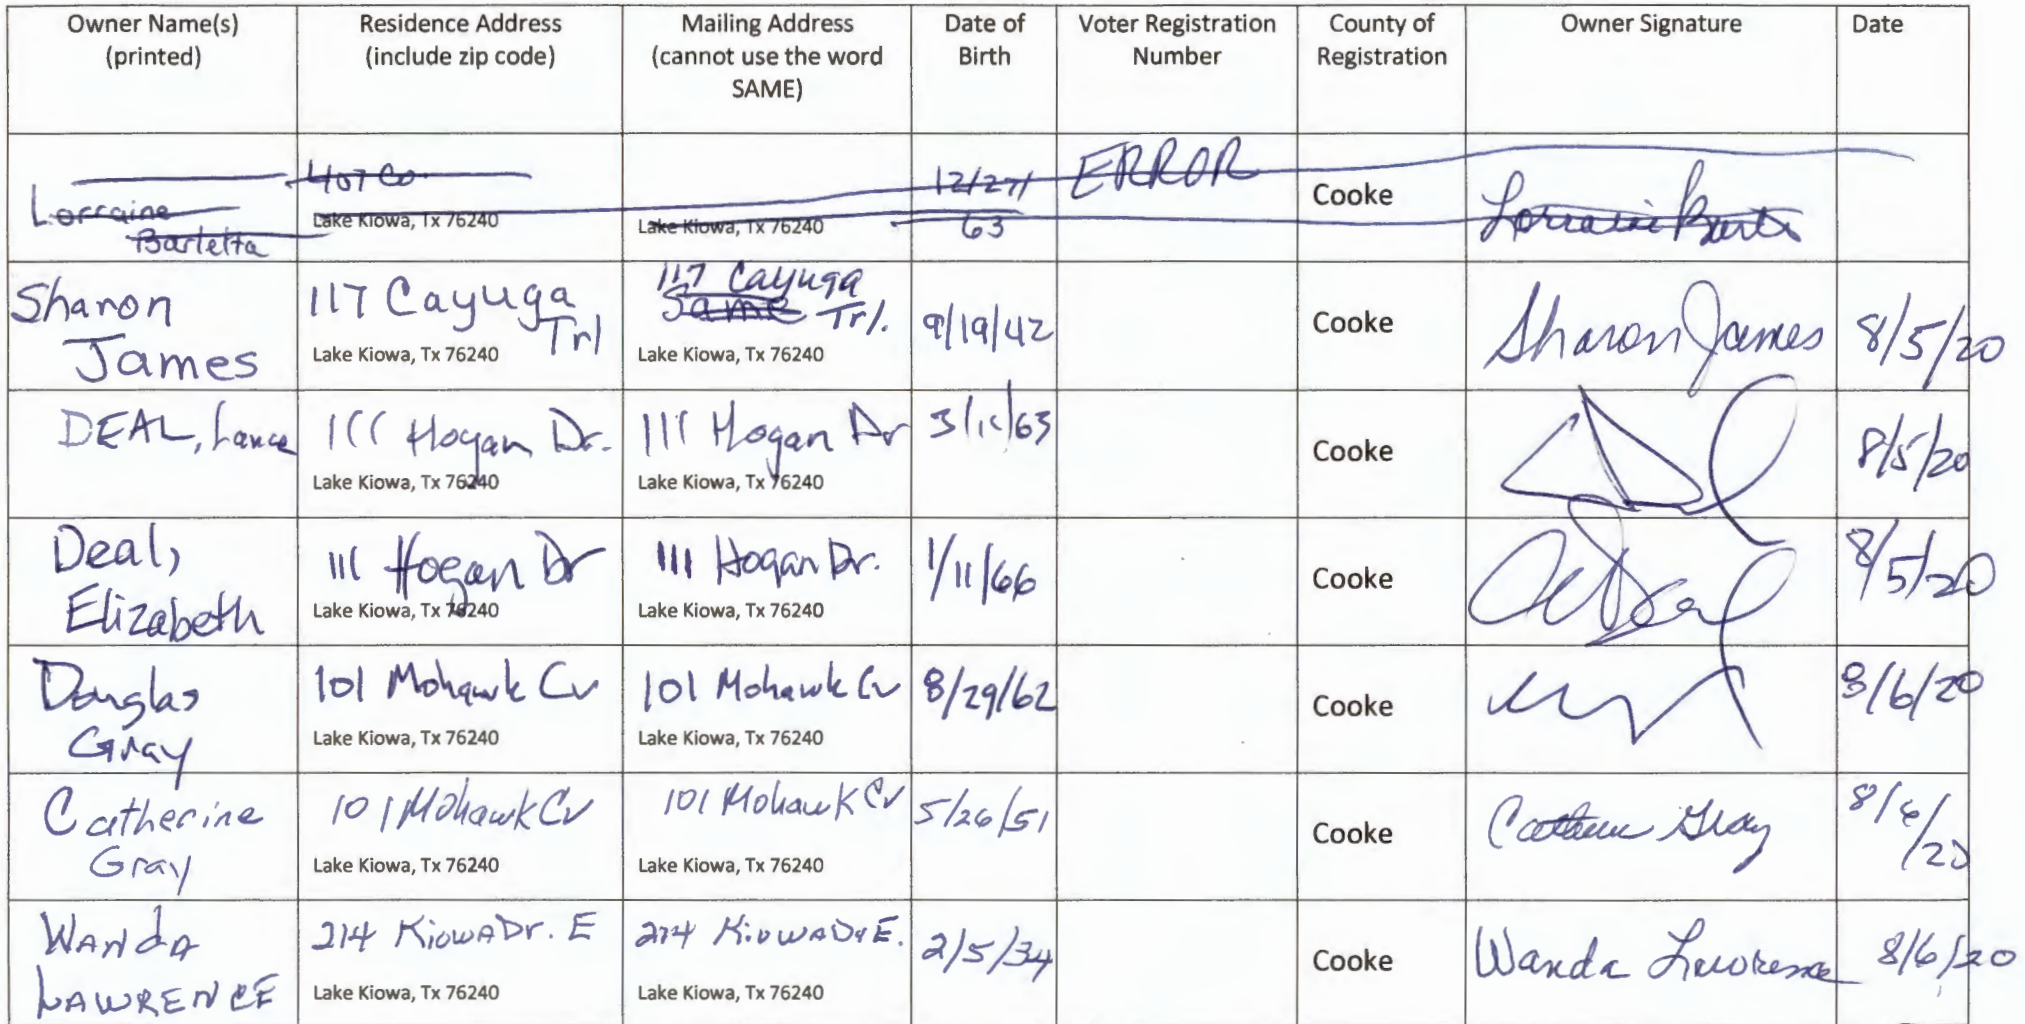 Owner Name(s)
(printed)
Residence Address
(include zip code)
Mailing Address
(cannot use the word
SAME)
Date of
Birth
Voter Registration
Number
County of
Registration
Owner Signature
Date
Lorraine
Barletta
407 Co
Lake Kiowa, Tx 76240
Lake Kiowa, Tx 76240
12/27/
63
ERROR
Cooke
Lorraine
Sharon
James
117 Cayuga
Trl
Lake Kiowa, Tx 76240
117 Cayuga
Same Trl.
Lake Kiowa, Tx 76240
9/19/42
Cooke
Sharon James
8/5/20
DEAL, Lance
111 Hogan Dr.
Lake Kiowa, Tx 76240
111 Hogan Dr
Lake Kiowa, Tx 76240
Cooke
8/5/20
Deal,
Elizabeth
111 Hogan Dr
Lake Kiowa, Tx 76240
111 Hogan Dr.
Lake Kiowa, Tx 76240
1/11/66
Cooke
Deal
8/5/20
Douglas
Gray
101 Mohawk Cv
Lake Kiowa, Tx 76240
101 Mohawk Cv
Lake Kiowa, Tx 76240
8/29/62
Cooke
8/6/20
Catherine
Gray
101 Mohawk Cv
Lake Kiowa, Tx 76240
101 Mohawk Cv
Lake Kiowa, Tx 76240
5/26/51
Cooke
Catherine Gray
8/6
/20
Wanda
LAWRENCE
214 Kiowa Dr. E
Lake Kiowa, Tx 76240
214 Kiowa Dr E.
Lake Kiowa, Tx 76240
2/5/34
Cooke
Wanda Lawrence
8/6/20